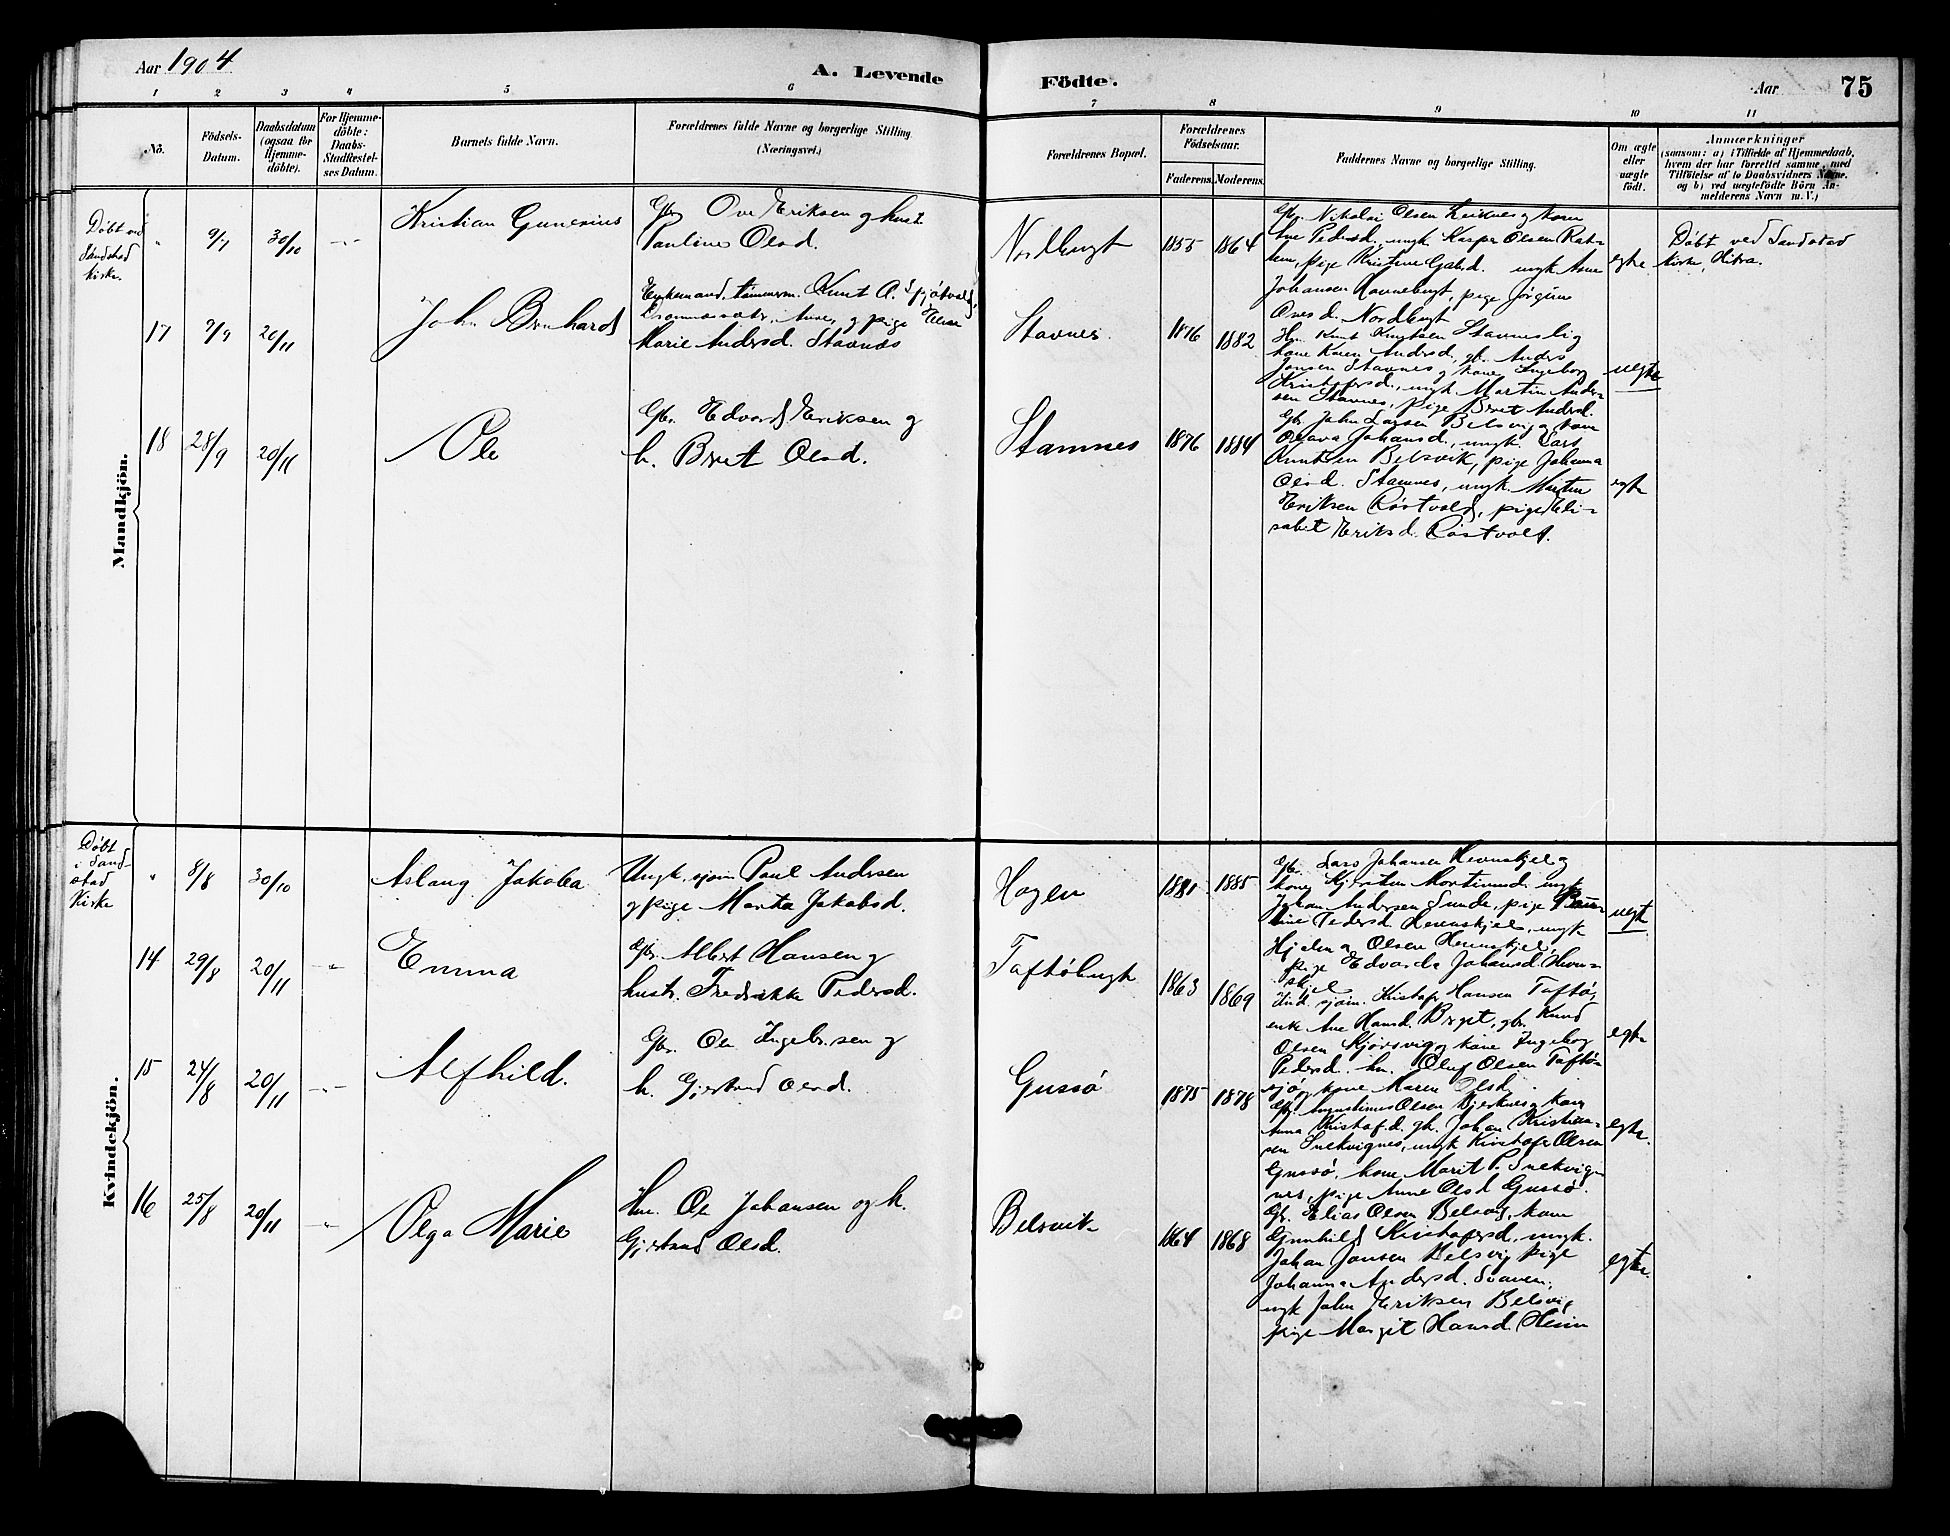 Aar 1904
A. Levende
Födte.
Aar
75
1 2 3 4 5 6 7 8 9 10 11
No.
Födsels-
Datum.
Daabsdatum
(ogsaa for
Hjemme-
döbte).
For Hjemme-
döbte:
Daabs-
Stadfæstel-
ses Datum.
Barnets fulde Navn.
Forældrenes fulde Navne og borgerlige Stilling
(Næringsvei.)
Forældrenes Bopæl.
Forældrenes
Födselsaar.
Faderens. Moderens.
Faddernes Navne og borgerlige Stilling.
Om ægte
eller
uægte
födt.
Anmærkninger
(saasom: a) i Tilfælde af Hjemmedaab,
hvem der har forrettet samme, med
Tilföielse af to Daabsvidners Navne,
og b) ved uægtefödte Börn An-
melderens Navn m.V.)
Mandkjön.
Døbt ved
Sandstad
Kirke.
" 9/7 30/10 -"-
Kristian Gunerius
Gbr. Ove Eriksen og hust.
Pauline Olsd.
Nordbugt
1855 1864
Gbr. Nikolai Olsen og kone
Ane Pedersd., ungk. Kasper Olsen
pige Kristine ungk. Arne
Johansen pige Jørgine
Ovesd. Nordbugt
egte
Døbt ved Sandstad
Kirke, Hitra.
17 9/9 20/11
John Bernhard
Enkemand, tømmerm. Knut A.
og pige Elen
Marie Andersd. Stavnes
Stavnes.
1876 1882
Hm. Knut Knutsen
kone Karen Andersd., gb. Anders
Jonsen Stavnes og kone Ingeborg
Kristofersd., ungk. Martin Ander-
sen Stavnes, pige Beret Andersd.
uegte
18 28/9 20/11
Ole
Gbr. Edvard Eriksen og
h. Beret Olsd.
Stamnes
1876 1884
Gbr John Larsen Belsvig og kone
Olava Johansd., ungk. Lars
Knutsen Belsvik, pige Johanna
Olsd. Stamnes, ungk. Martin
Eriksen Røstvold, pige Eli-
sabet Eriksd. Røstvold.
egte
Kvindekjön.
Døbt
i Sand-
stad
Kirke
" 8/8 30/10
Aslaug Jakobea
Ungk. sjøm. Paul Andersen
og pige Marita Jakobsd.
Hagen
1881 1885
Gbr. Lars Johansen Hevnskjel og
kone Kjersten Martinusd. ungk
Johan Andersen Sunde, pige
Pedersd. Hevnskjel, ungk
Hjelmar Olsen Hevnskjel,
pige Edvarda Johansd. Hevn-
skjel
uegte
14 29/8 20/11 -"-
Emma
Gbr. Albert Hansen og
hustr. Fredrikke Pedersd.
Taftøbugt
1863 1869
Ind. sjøm. Kristofer Hansen Taftø,
enke Ane Hansd. gbr. Knud
Olsen Kjørsvig og kone Ingeborg
Pedersd., hm. Oluf Olsen Taftø-
sjø og kone Maren Olsd.
egte
15 24/8 20/11 -"-
Alfhild.
Gbr. Ole Ingebr.sen og
h. Gjertrud Olsd.
Gussø
1875 1878
Gbr. Augustinus Olsen og kone
Anna Kristofd. gb. Johan Kristian-
sen Snekvignes, ungk Kristofer Olsen
Gussø, kone Marit P. Snekvig-
nes, pige Anne Olsd Gussø.
egte.
16 25/8 20/11 -"-
Olga Marie
Hm. Ole Johansen og h.
Gjertrud Olsd.
Belsvik
1864 1868
Gb. Elias Olsen Belsvig, kone
Gunhild Kristofersd., ungk.
Johan Jonsen Belsvig pige
Johanna Andersd. Svanem,
ungk John Eriksen Belsvig
pige Margit Hansd. Heim
egte.